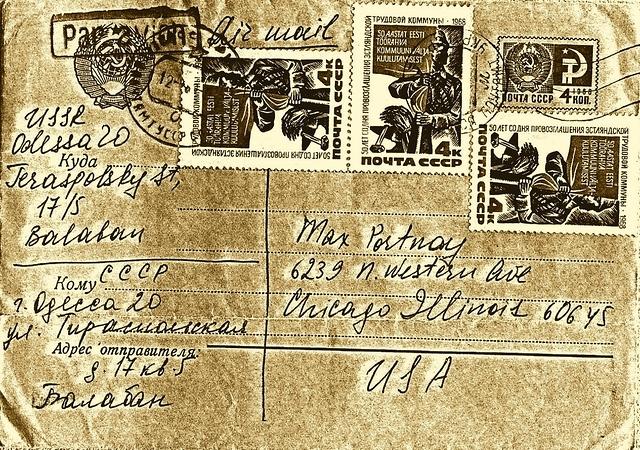 Par avion
Air mail
USSR
Odessa 20
Куда
Teraspolsky St,
17/5
Balaban
СССР
Кому
г. Одесса 20
ул. Тираспольская
Адрес отправителя:
д. 17 кв 5
Балабан
50 ЛЕТ СО ДНЯ ПРОВОЗГЛАШЕНИЯ ЭСТЛЯНДСКОЙ
ТРУДОВОЙ КОММУНЫ · 1968
50 AASTAT EESTI
TÖÖRAHVA
KOMMUUNI VÄLJA
KUULUTAMISEST
4К
ПОЧТА СССР
50 ЛЕТ СО ДНЯ ПРОВОЗГЛАШЕНИЯ ЭСТЛЯНДСКОЙ
ТРУДОВОЙ КОММУНЫ · 1968
50 AASTAT EESTI
TÖÖRAHVA
KOMMUUNI VÄLJA
KUULUTAMISEST
4К
ПОЧТА СССР
1966
ПОЧТА СССР 4 КОП.
50 ЛЕТ СО ДНЯ ПРОВОЗГЛАШЕНИЯ ЭСТЛЯНДСКОЙ
ТРУДОВОЙ КОММУНЫ 1968
50 AASTAT EESTI
TÖÖRAHVA
KOMMUUNI VÄLJA
KUULUTAMISEST
4К
ПОЧТА СССР
Max Portnoy
6239 N. Western Ave
Chicago Illinois 60645
USA